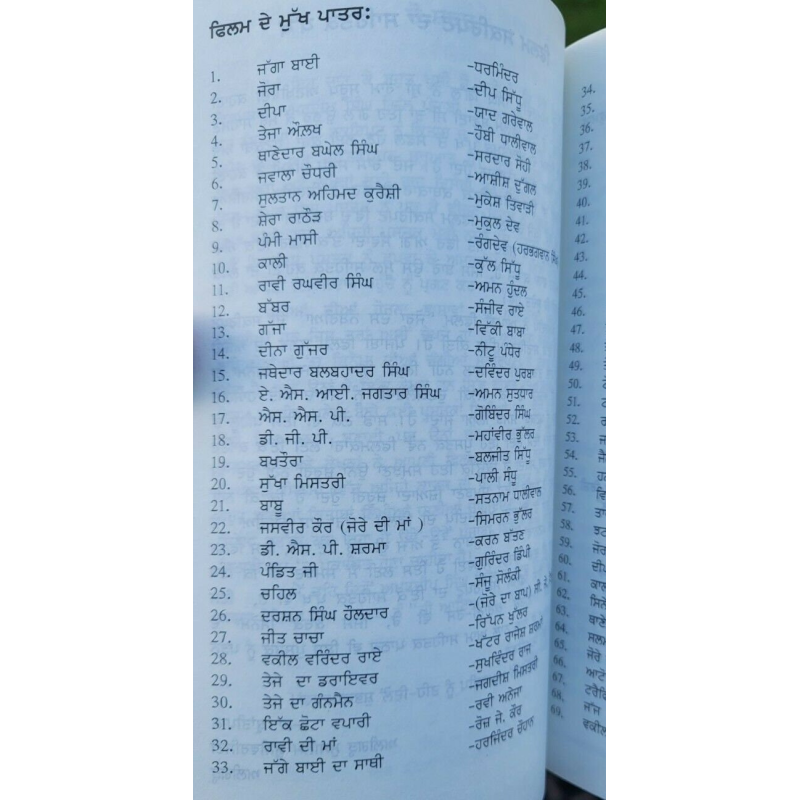 ਫਿਲਮ ਦੇ ਮੁੱਖ ਪਾਤਰ:
1. ਜੱਗਾ ਬਾਈ -ਧਰਮਿੰਦਰ
2. ਜੋਰਾ -ਦੀਪ ਸਿੱਧੂ
3. ਦੀਪਾ -ਯਾਦ ਗਰੇਵਾਲ
4. ਤੇਜਾ ਔਲਖ -ਹੌਬੀ ਧਾਲੀਵਾਲ
5. ਥਾਣੇਦਾਰ ਬਘੇਲ ਸਿੰਘ -ਸਰਦਾਰ ਸੋਹੀ
6. ਜਵਾਲਾ ਚੌਧਰੀ -ਆਸ਼ੀਸ਼ ਦੁੱਗਲ
7. ਸੁਲਤਾਨ ਅਹਿਮਦ ਕੁਰੈਸ਼ੀ -ਮੁਕੇਸ਼ ਤਿਵਾੜੀ
8. ਸ਼ੇਰਾ ਰਾਠੌੜ -ਮੁਕੁਲ ਦੇਵ
9. ਪੰਮੀ ਮਾਸੀ -ਰੰਗਦੇਵ (ਹਰਭਗਵਾਨ ਸਿੰਘ
10. ਕਾਲੀ -ਕੁੱਲ ਸਿੱਧੂ
11. ਰਾਵੀ ਰਘਵੀਰ ਸਿੰਘ -ਅਮਨ ਹੁੰਦਲ
12. ਬੱਬਰ -ਸੰਜੀਵ ਰਾਏ
13. ਗੱਜਾ -ਵਿੱਕੀ ਬਾਬਾ
14. ਦੀਨਾ ਗੁੱਜਰ -ਨੀਟੂ ਪੰਧੇਰ
15. ਜਥੇਦਾਰ ਬਲਬਹਾਦਰ ਸਿੰਘ -ਦਵਿੰਦਰ ਪੁਰਬਾ
16. ਏ. ਐਸ. ਆਈ. ਜਗਤਾਰ ਸਿੰਘ -ਅਮਨ ਸੁਤਧਾਰ
17. ਐਸ. ਐਸ. ਪੀ. -ਗੋਬਿੰਦਰ ਸਿੰਘ
18. ਡੀ. ਜੀ. ਪੀ. -ਮਹਾਂਵੀਰ ਭੁੱਲਰ
19. ਬਖਤੌਰਾ -ਬਲਜੀਤ ਸਿੱਧੂ
20. ਸੁੱਖਾ ਮਿਸਤਰੀ -ਪਾਲੀ ਸੰਧੂ
21. ਬਾਬੂ -ਸਤਨਾਮ ਧਾਲੀਵਾਲ
22. ਜਸਵੀਰ ਕੌਰ (ਜੋਰੇ ਦੀ ਮਾਂ ) -ਸਿਮਰਨ ਭੁੱਲਰ
23. ਡੀ. ਐਸ. ਪੀ. ਸ਼ਰਮਾ -ਕਰਨ ਬੱਤਣ
24. ਪੰਡਿਤ ਜੀ -ਗੁਰਿੰਦਰ ਡਿੰਪੀ
25. ਚਹਿਲ -ਸੰਜੂ ਸੋਲੰਕੀ
26. ਦਰਸ਼ਨ ਸਿੰਘ ਹੌਲਦਾਰ -(ਜੋਰੇ ਦਾ ਬਾਪ)
27. ਜੀਤ ਚਾਚਾ -ਰਿੱਪਨ ਖੁੱਲਰ
28. ਵਕੀਲ ਵਰਿੰਦਰ ਰਾਏ -ਖੱਟਰ ਰਾਜੇਸ਼ ਸ਼ਰਮਾ
29. ਤੇਜੇ ਦਾ ਡਰਾਇਵਰ -ਸੁਖਵਿੰਦਰ ਰਾਜ
30. ਤੇਜੇ ਦਾ ਗੰਨਮੈਨ -ਜਗਦੀਸ਼ ਮਿਸਤਰੀ
31. ਇੱਕ ਛੋਟਾ ਵਪਾਰੀ -ਰਵੀ ਅਨੇਜਾ
32. ਰਾਵੀ ਦੀ ਮਾਂ -ਰੋਜ਼ ਜੇ. ਕੌਰ
33. ਜੱਗੇ ਬਾਈ ਦਾ ਸਾਥੀ -ਹਰਜਿੰਦਰ ਚੌਹਾਨ
34.
35.
36.
37.
38.
39.
40.
41.
42.
43.
44.
45.
46.
47.
48.
49.
50.
51.
52.
53.
54.
55.
56.
57.
58.
59. ਜੋਰਾ
60. ਦੀਪ
61.
62.
63.
64.
65. ਜੋਰੇ
66.
67.
68. ਜੱਜ
69. ਵਕੀਲ